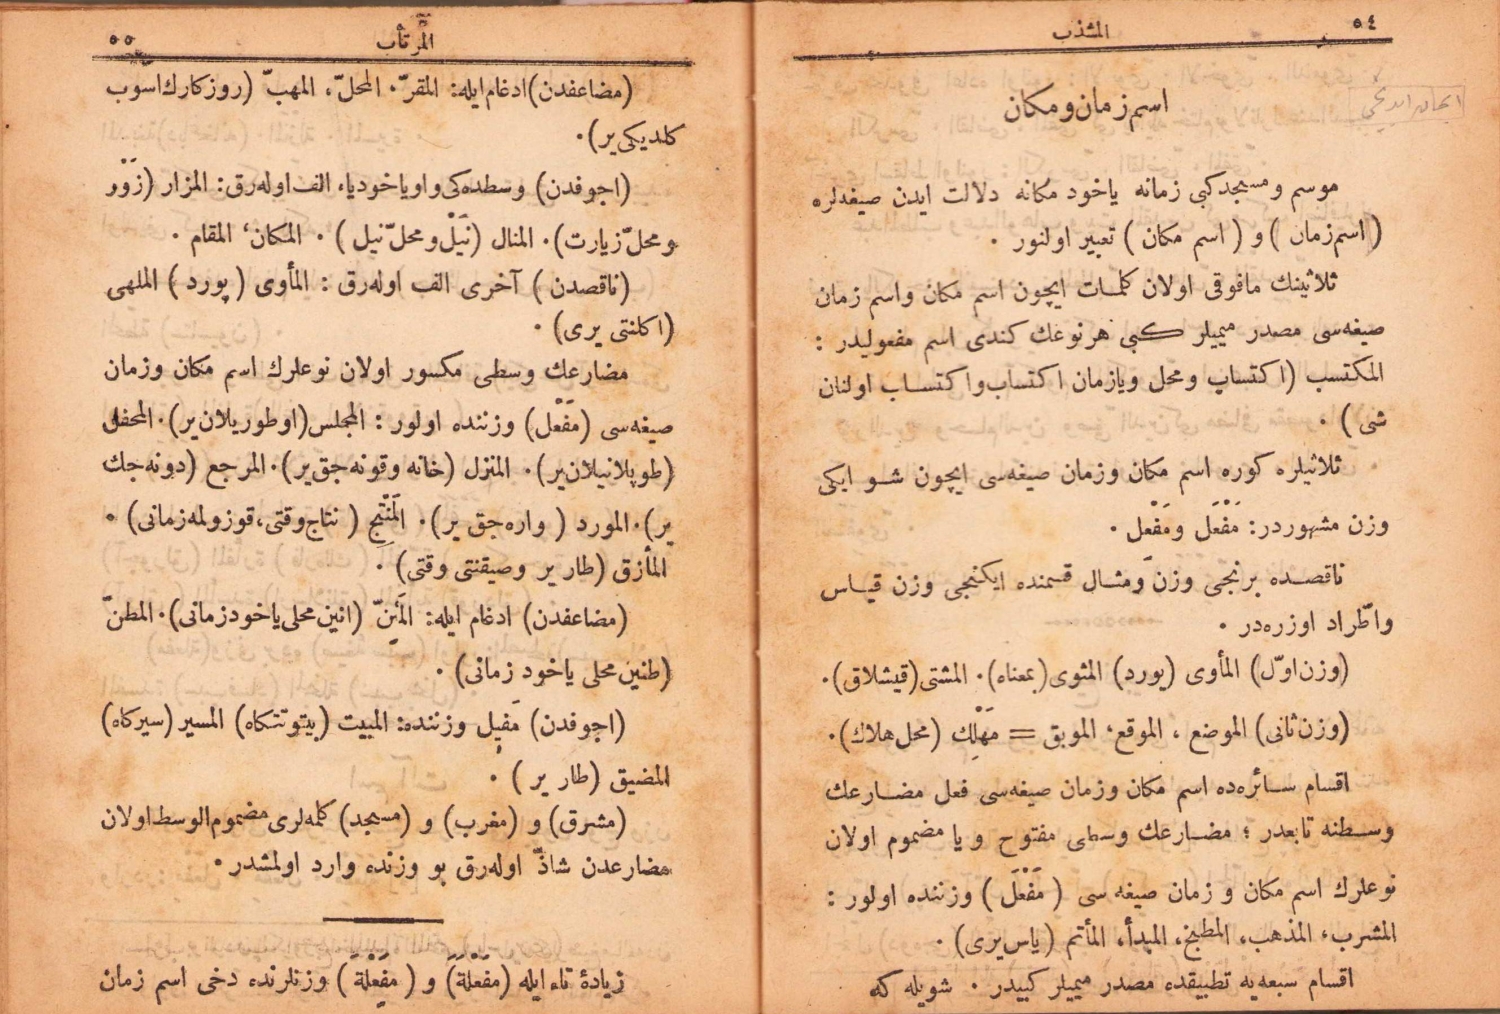 ٥٤
المشذب
اسم زمان و مكان
موسم و مسجد كبى زمانه ياخود مكانه دلالت ايدن صيغه‌لره
(اسم زمان) و (اسم مكان) تعبير اولنور .
ثلاثينك مافوقى اولان كلمات ايچون اسم مكان واسم زمان
صيغه‌سى مصدر ميميلر كبى هر نوعك كندى اسم مفعوليدر :
المكتسب (اكتساب ومحل ويازمان اكتساب واكتساب اولنان
شى) .
ثلاثيلره كوره اسم مكان وزمان صيغه‌سى ايچون شو ايكى
وزن مشهوردر: مَفْعَل ومَفْعِل .
ناقصده برنجى وزن ومثال قسمنده ايكنجى وزن قياس
واطّراد اوزره‌در .
(وزن اوّل) المأوى (يورد) المثوى (بمعناه). المشتى (قيشلاق).
(وزن ثانى) الموضع ، الموقع، الموبق = مَهْلِك (محل هلاك).
اقسام سائره‌ده اسم مكان وزمان صيغه‌سى فعل مضارعك
وسطنه تابعدر ؛ مضارعك وسطى مفتوح ويا مضموم اولان
نوعلرك اسم مكان و زمان صيغه سى (مَفْعَل) وزننده اولور :
المشرب، المذهب، المطبخ، المبدأ، المأتم (ياس يرى) .
اقسام سبعه‌يه تطبيقده مصدر ميميلر كبيدر . شويله كه
المرتأب
٥٥
(مضاعفدن) ادغام ايله: المقرّ . المحلّ ، المهبّ (روزكارك اسوب
كلديكى ير) .
(اجوفدن) وسطده‌كى واو ياخود ياء الف اوله‌رق: المزار (زَوْر
ومحلّ زيارت). المنال (نَيْل ومحلّ نيل) . المكان، المقام .
(ناقصدن) آخرى الف اوله‌رق : المأوى (يورد) الملهى
(اكلنتى يرى) .
مضارعك وسطى مكسور اولان نوعلرك اسم مكان وزمان
صيغه‌سى (مَفْعِل) وزننده اولور : المجلس (اوطوريلان ير). المحفل
(طوپلانيلان ير). المنزل (خانه وقونه‌جق ير). المرجع (دونه‌جك
ير). المورد (واره‌جق ير). المَنْتِج (نتاج وقتى، قوزولمه زمانى) .
المأزق (طار ير وصيقنتى وقتى) .
(مضاعفدن) ادغام ايله: المَئِنّ (انين محلى ياخود زمانى). المطنّ
(طنين محلى ياخود زمانى) .
(اجوفدن) مَفِيل وزننده: المبيت (بيتوتتكاه) المسير (سيركاه)
المضيق (طار ير) .
(مشرق) و (مغرب) و (مسجد) كلمه‌لرى مضموم الوسط اولان
مضارعدن شاذّ اوله‌رق بو وزنده وارد اولمشدر .
زيادۀ تاء ايله (مَفْعَلَة) و (مَفْعِلَة) وزنلرنده دخى اسم زمان